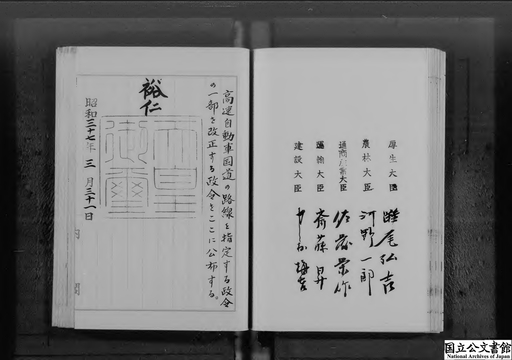 高速自動車国道の路線を指定する政令
の一部を改正する政令をここに公布する。
裕仁
天皇
御璽
昭和三十七年 三 月三十一日
内 閣
厚生大臣 灘尾弘吉
農林大臣 河野一郎
通商産業大臣 佐藤栄作
運輸大臣 斎藤昇
建設大臣 中村梅吉
国立公文書館
National Archives of Japan